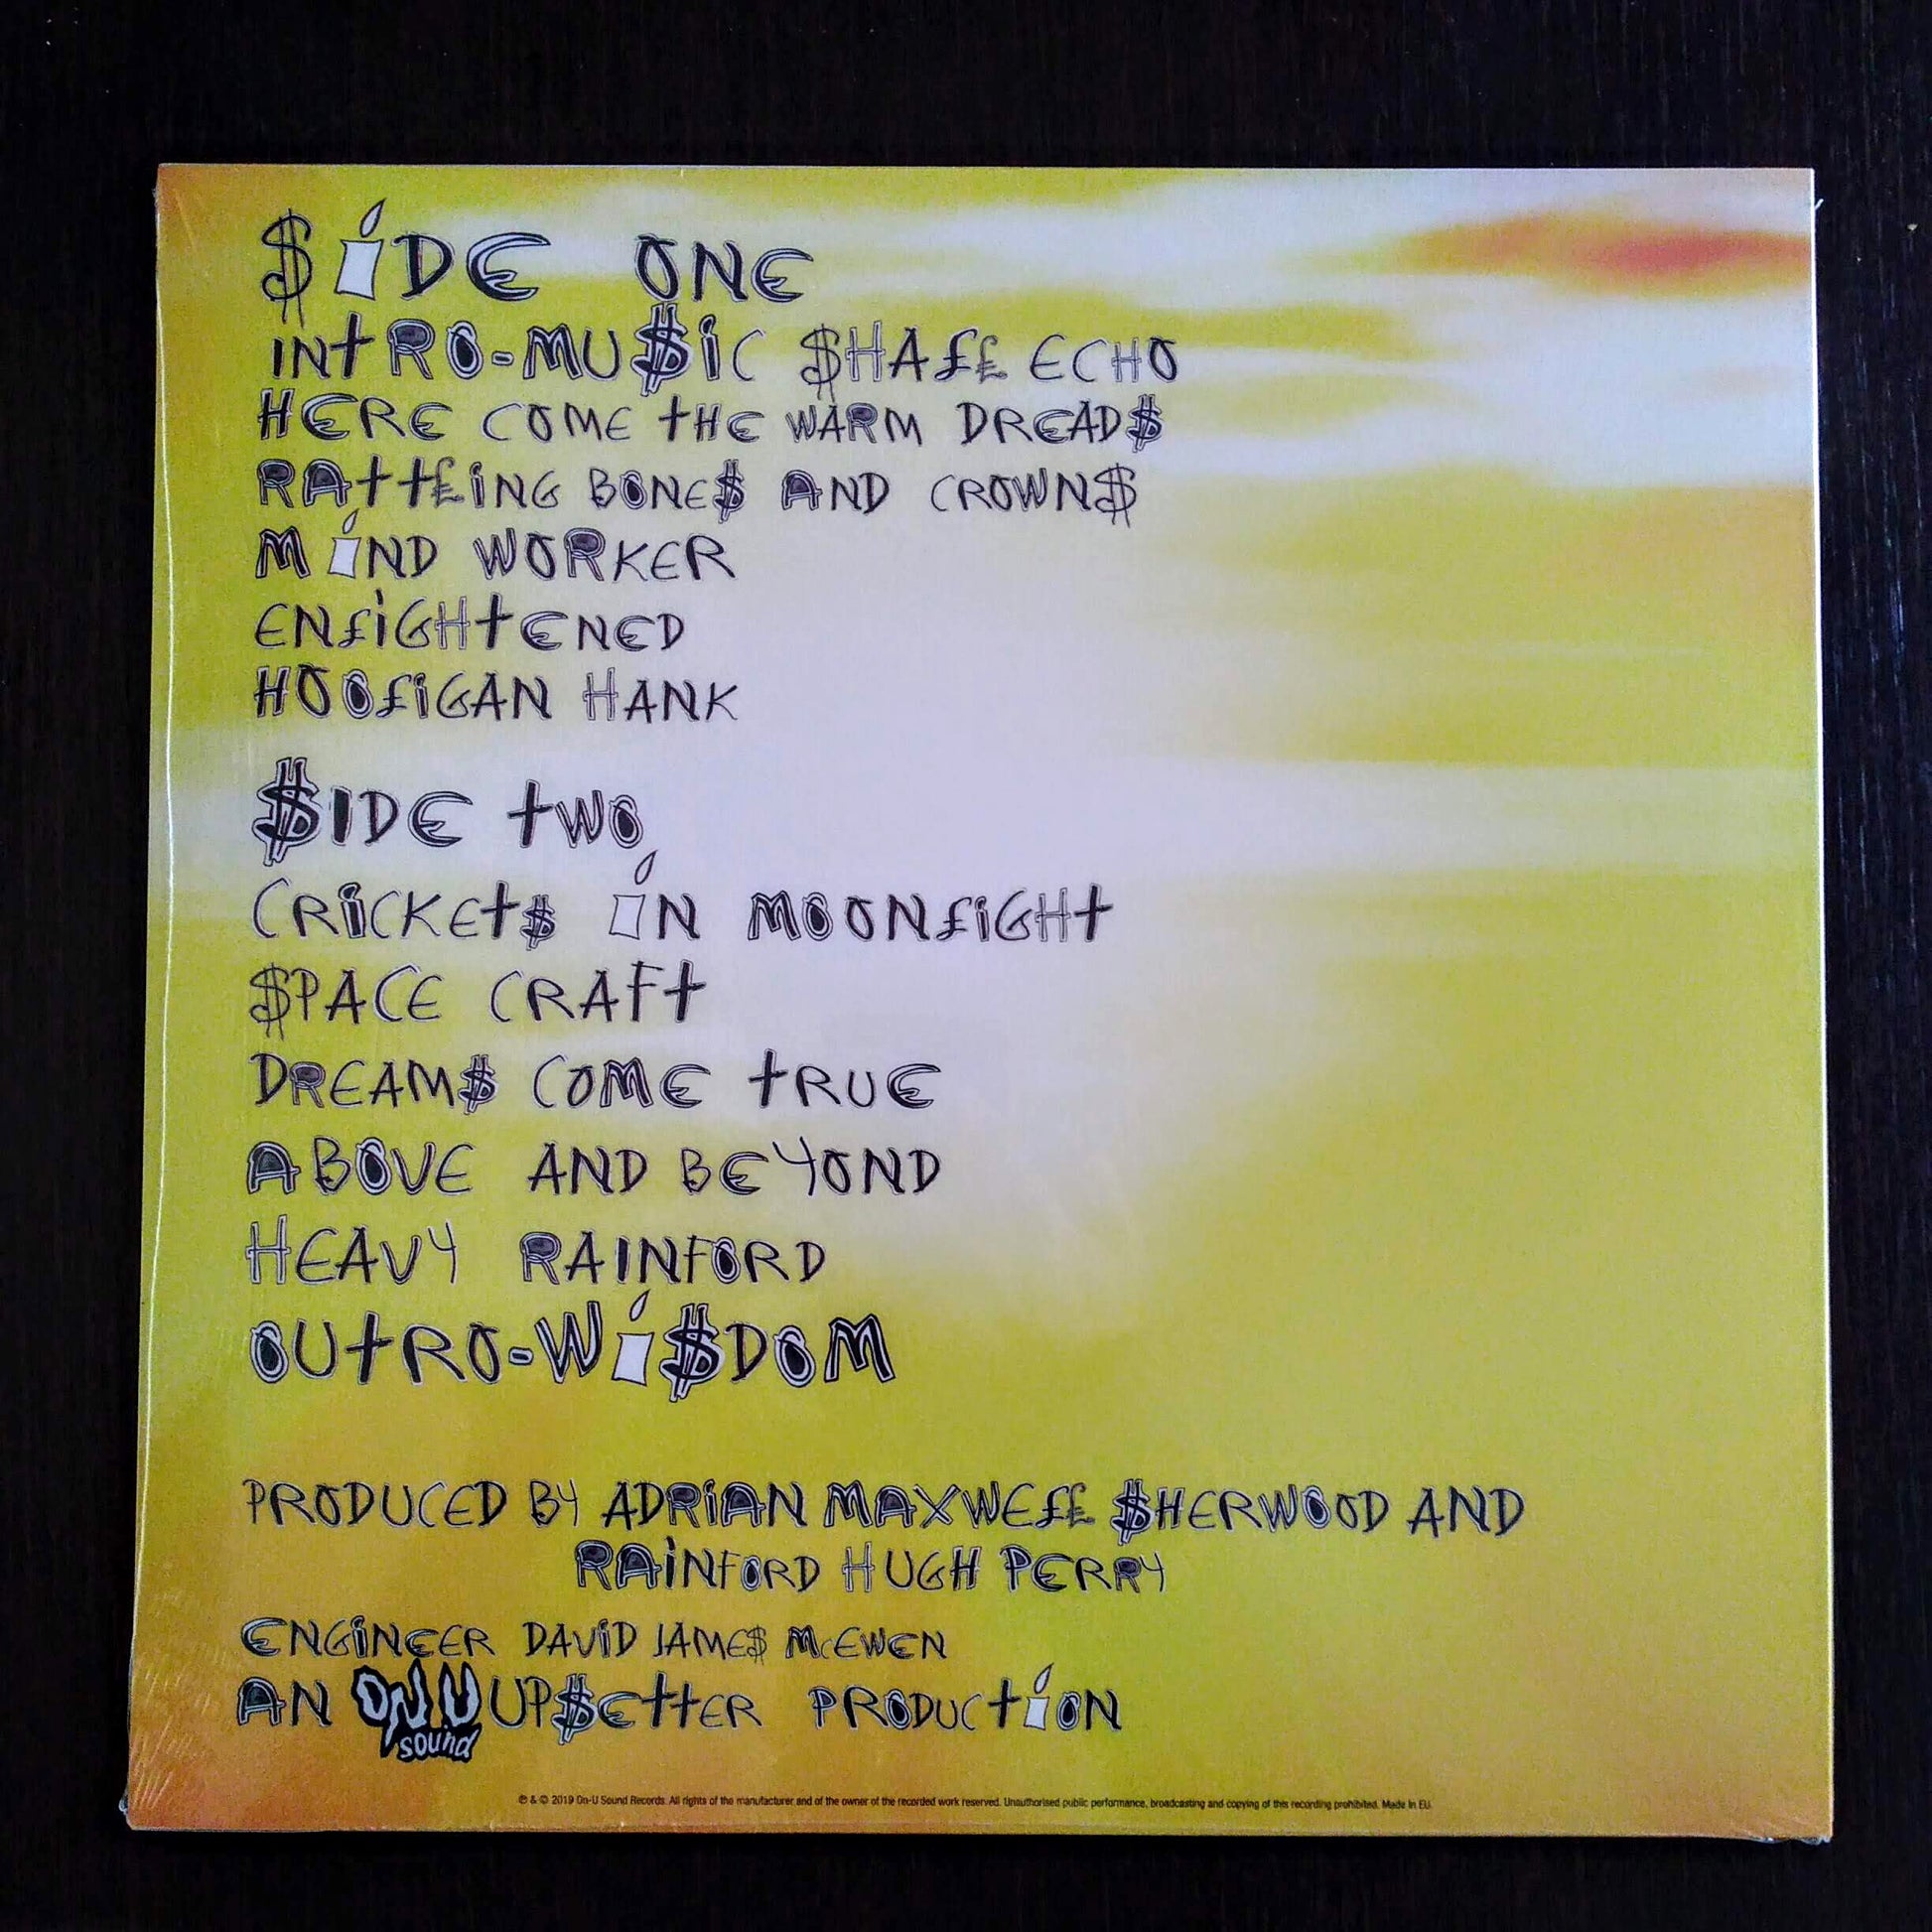 $iDE ONE
INTRO-MU$iC $HA££ ECHO
HERE COME THE WARM DREAD$
RATT£iNG BONE$ AND CROWN$
MiND WORKER
EN£iGHTENED
HOO£iGAN HANK
$IDE TWO
CRiCKET$ iN MOON£iGHT
$PACE CRAFT
DREAM$ COME TRUE
ABOVE AND BEYOND
HEAVY RAINFORD
OUTRO-Wi$DOM
PRODUCED BY ADRiAN MAXWE££ $HERWOOD AND
RAiNFORD HUGH PERRY
ENGiNEER DAViD JAME$ McEWEN
AN ON U sound UP$ETTER PRODUCTiON
℗ & © 2019 On-U Sound Records. All rights of the manufacturer and of the owner of the recorded work reserved. Unauthorised public performance, broadcasting and copying of this recording prohibited. Made In EU.